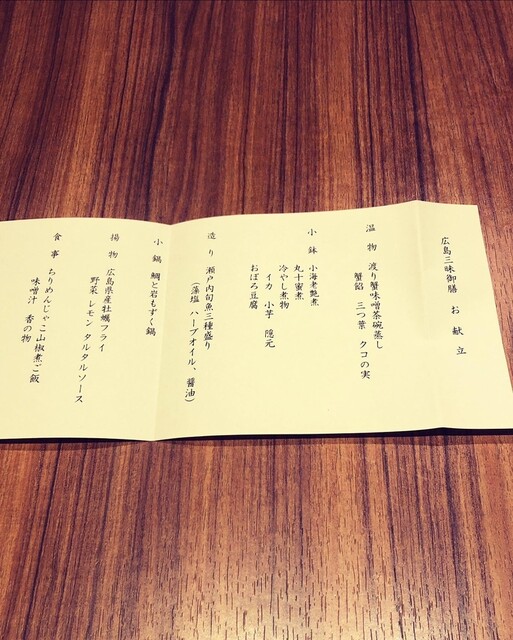 広島三昧御膳 お献立
温物 渡り蟹味噌茶碗蒸し
蟹餡 三つ葉 クコの実
小鉢 小海老艶煮
丸十蜜煮
冷やし煮物
イカ 小芋 隠元
おぼろ豆腐
造り 瀬戸内旬魚三種盛り
(藻塩 ハーブオイル、醤油)
小鍋 鯛と岩もずく鍋
揚物 広島県産牡蠣フライ
野菜 レモン タルタルソース
食事 ちりめんじゃこ山椒煮ご飯
味噌汁 香の物